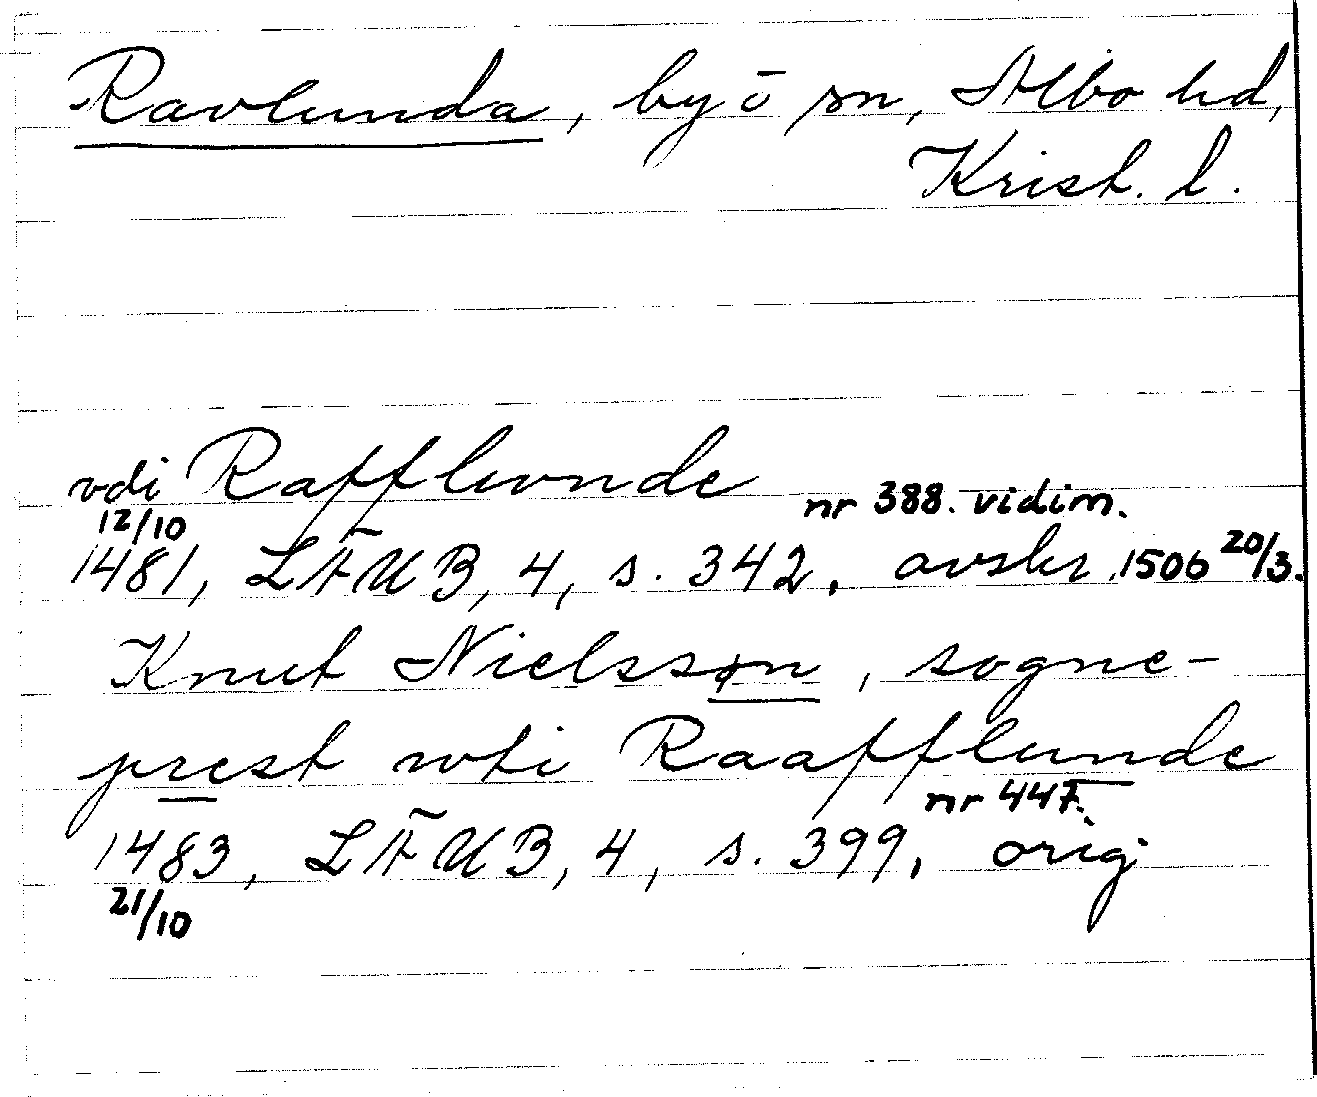 Ravlunda, by o sn, Albo hd,
Krist. l.
vdi Rafflvnde nr 388. vidim.
12/10
1481, LÄUB, 4, s. 342, avskr. 1506 20/3.
Knut Nielssøn, sogne-
prest wti Raafflunde
nr 447.
1483, LÄUB, 4, s. 399, orig
21/10